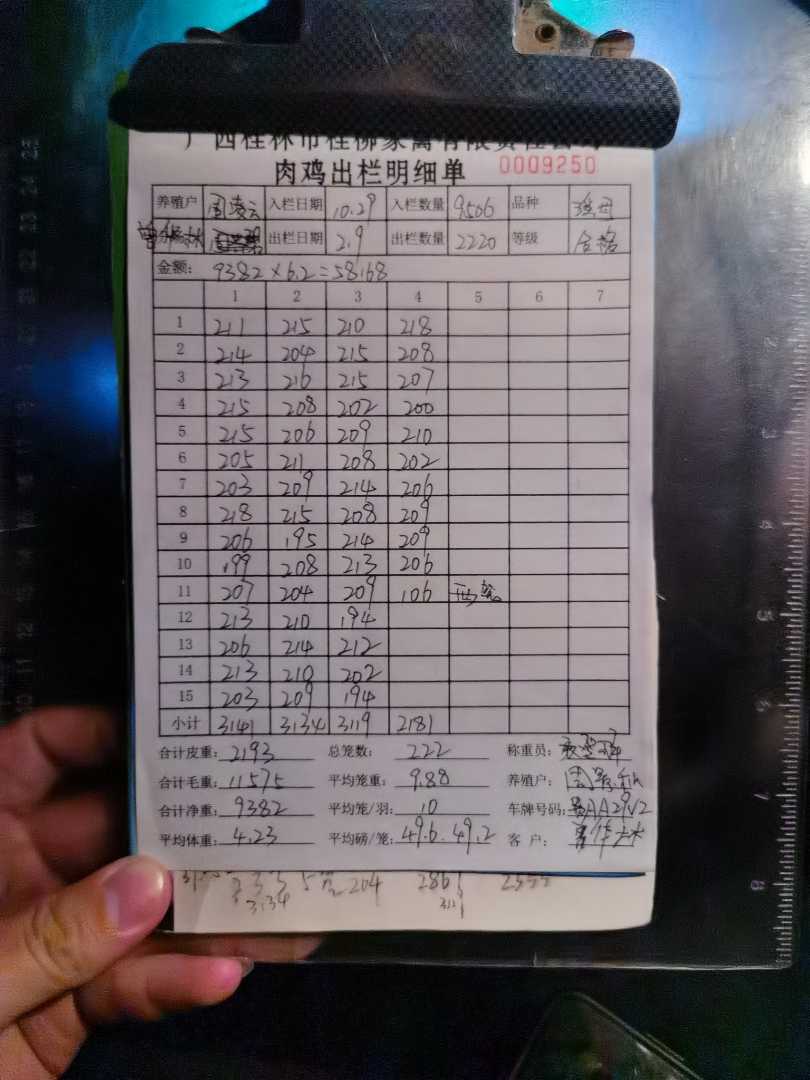 广西桂林市桂柳家禽有限责任公司
肉鸡出栏明细单 0009250
养殖户 周凌云 入栏日期 10.29 入栏数量 9506 品种
出栏日期 2.9 出栏数量 2220 等级 合格
金额: 9382×6.2=58168
1 2 3 4 5 6 7
1 211 215 210 218
2 214 204 215 208
3 213 216 215 207
4 215 208 202 200
5 215 206 209 210
6 205 211 208 202
7 203 209 214 206
8 218 215 208 209
9 206 195 214 209
10 199 208 213 206
11 207 204 209 106 两笼
12 213 210 194
13 206 214 212
14 213 210 202
15 203 209 194
小计 3141 3134 3119 2181
合计皮重: 2193 总笼数: 222 称重员:
合计毛重: 11575 平均笼重: 9.88 养殖户:
合计净重: 9382 平均笼/羽: 10 车牌号码:
平均体重: 4.23 平均磅/笼: 49.6.49.2 客户:
204
3134